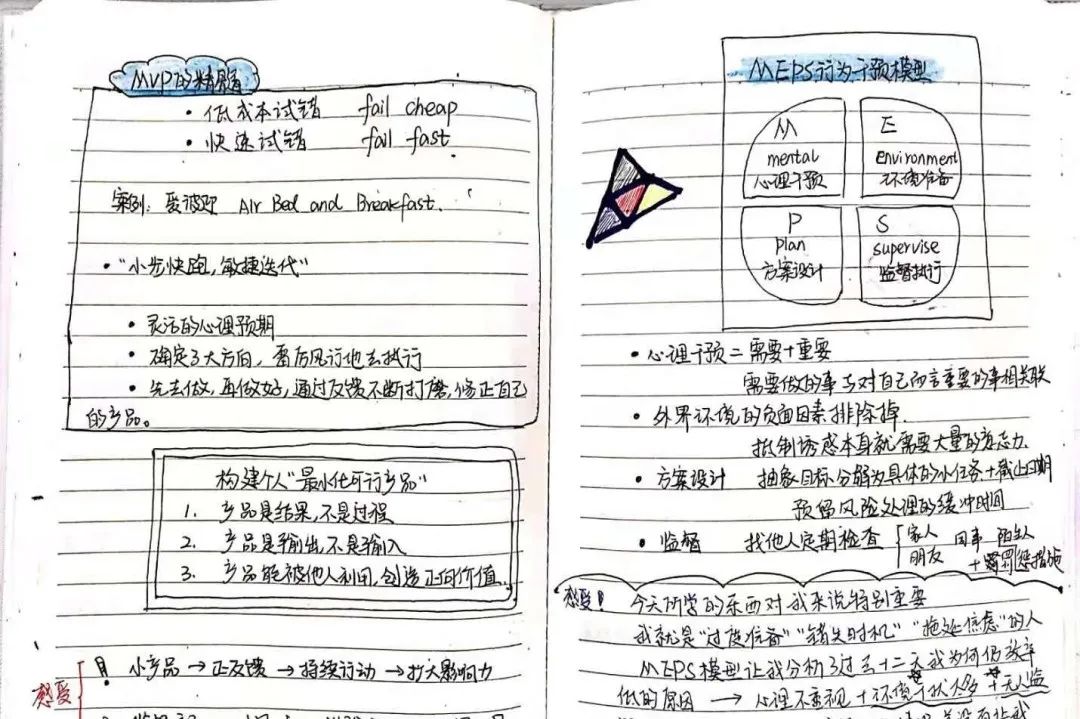 MVP的精髓
• 低成本试错 fail cheap
• 快速试错 fail fast
案例: 爱彼迎 Air Bed and Breakfast.
• "小步快跑,敏捷迭代"
• 灵活的心理预期
• 确定了大方向, 雷厉风行地去执行
• 先去做, 再做好, 通过反馈不断打磨, 修正自己
的产品。
构建个人"最小化可行产品"
1. 产品是结果, 不是过程
2. 产品是输出, 不是输入
3. 产品能被他人利用, 创造正向价值.
感受
小产品 → 正反馈 → 持续行动 → 扩大影响力
MEPS行为干预模型
M
mental
心理干预
E
environment
环境准备
P
plan
方案设计
S
supervise
监督执行
• 心理干预 = 需要+重要
需要做的事与对自己而言重要的事相关联
• 外界环境的负面因素排除掉.
抵制诱惑本身就需要大量的意志力.
• 方案设计 抽象目标分解为具体的小任务+截止日期
预留风险处理的缓冲时间
• 监督 找他人定期检查 { 家人 同事 陌生人
朋友 + 惩措施
感受! 今天所学的东西对我来说特别重要
我就是"过度准备" "错失时机" "拖延焦虑"的人
MEPS模型让我分析了过去十二天我为何仍效率
低的原因 → 心理不重视 + 环境干扰太多 + 无人监